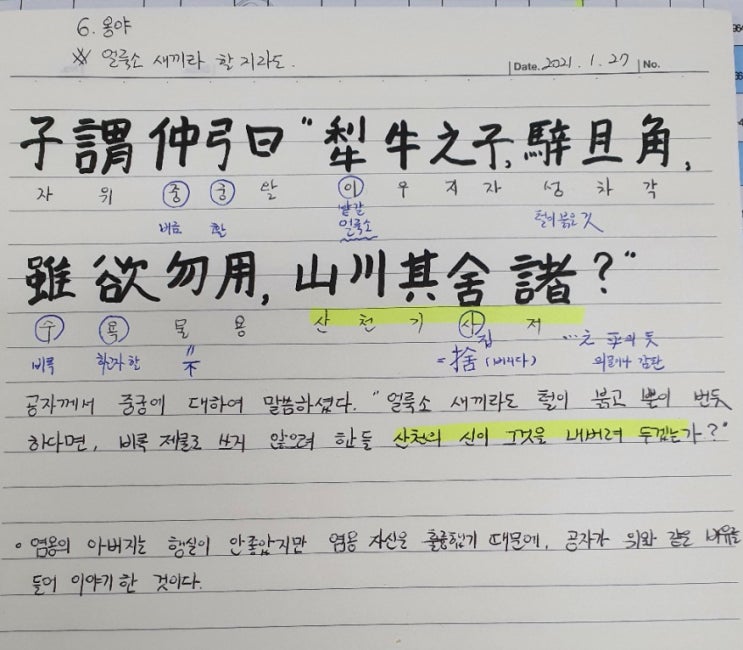 6. 옹야
※ 얼룩소 새끼라 할지라도.
Date. 2021. 1. 27 No.
子謂仲弓曰 "犁牛之子, 騂且角,
자 위 중 궁 왈 이 우 지 자 성 차 각
버금 활 밭갈 얼룩소 털이 붉은 것
雖欲勿用, 山川其舍諸?"
수 욕 물 용 산 천 기 사 저
비록 하고자 할 〃不 집 =捨 (버리다) …之 乎의 뜻 의문이나 감탄
공자께서 중궁에 대하여 말씀하셨다. "얼룩소 새끼라도 털이 붉고 뿔이 번듯
하다면, 비록 제물로 쓰지 않으려 한들 산천의 신이 그것을 내버려 두겠는가?"
• 염옹의 아버지는 행실이 안좋았지만 염옹 자신은 훌륭했기 때문에, 공자가 위와 같은 비유를
들어 이야기 한 것이다.